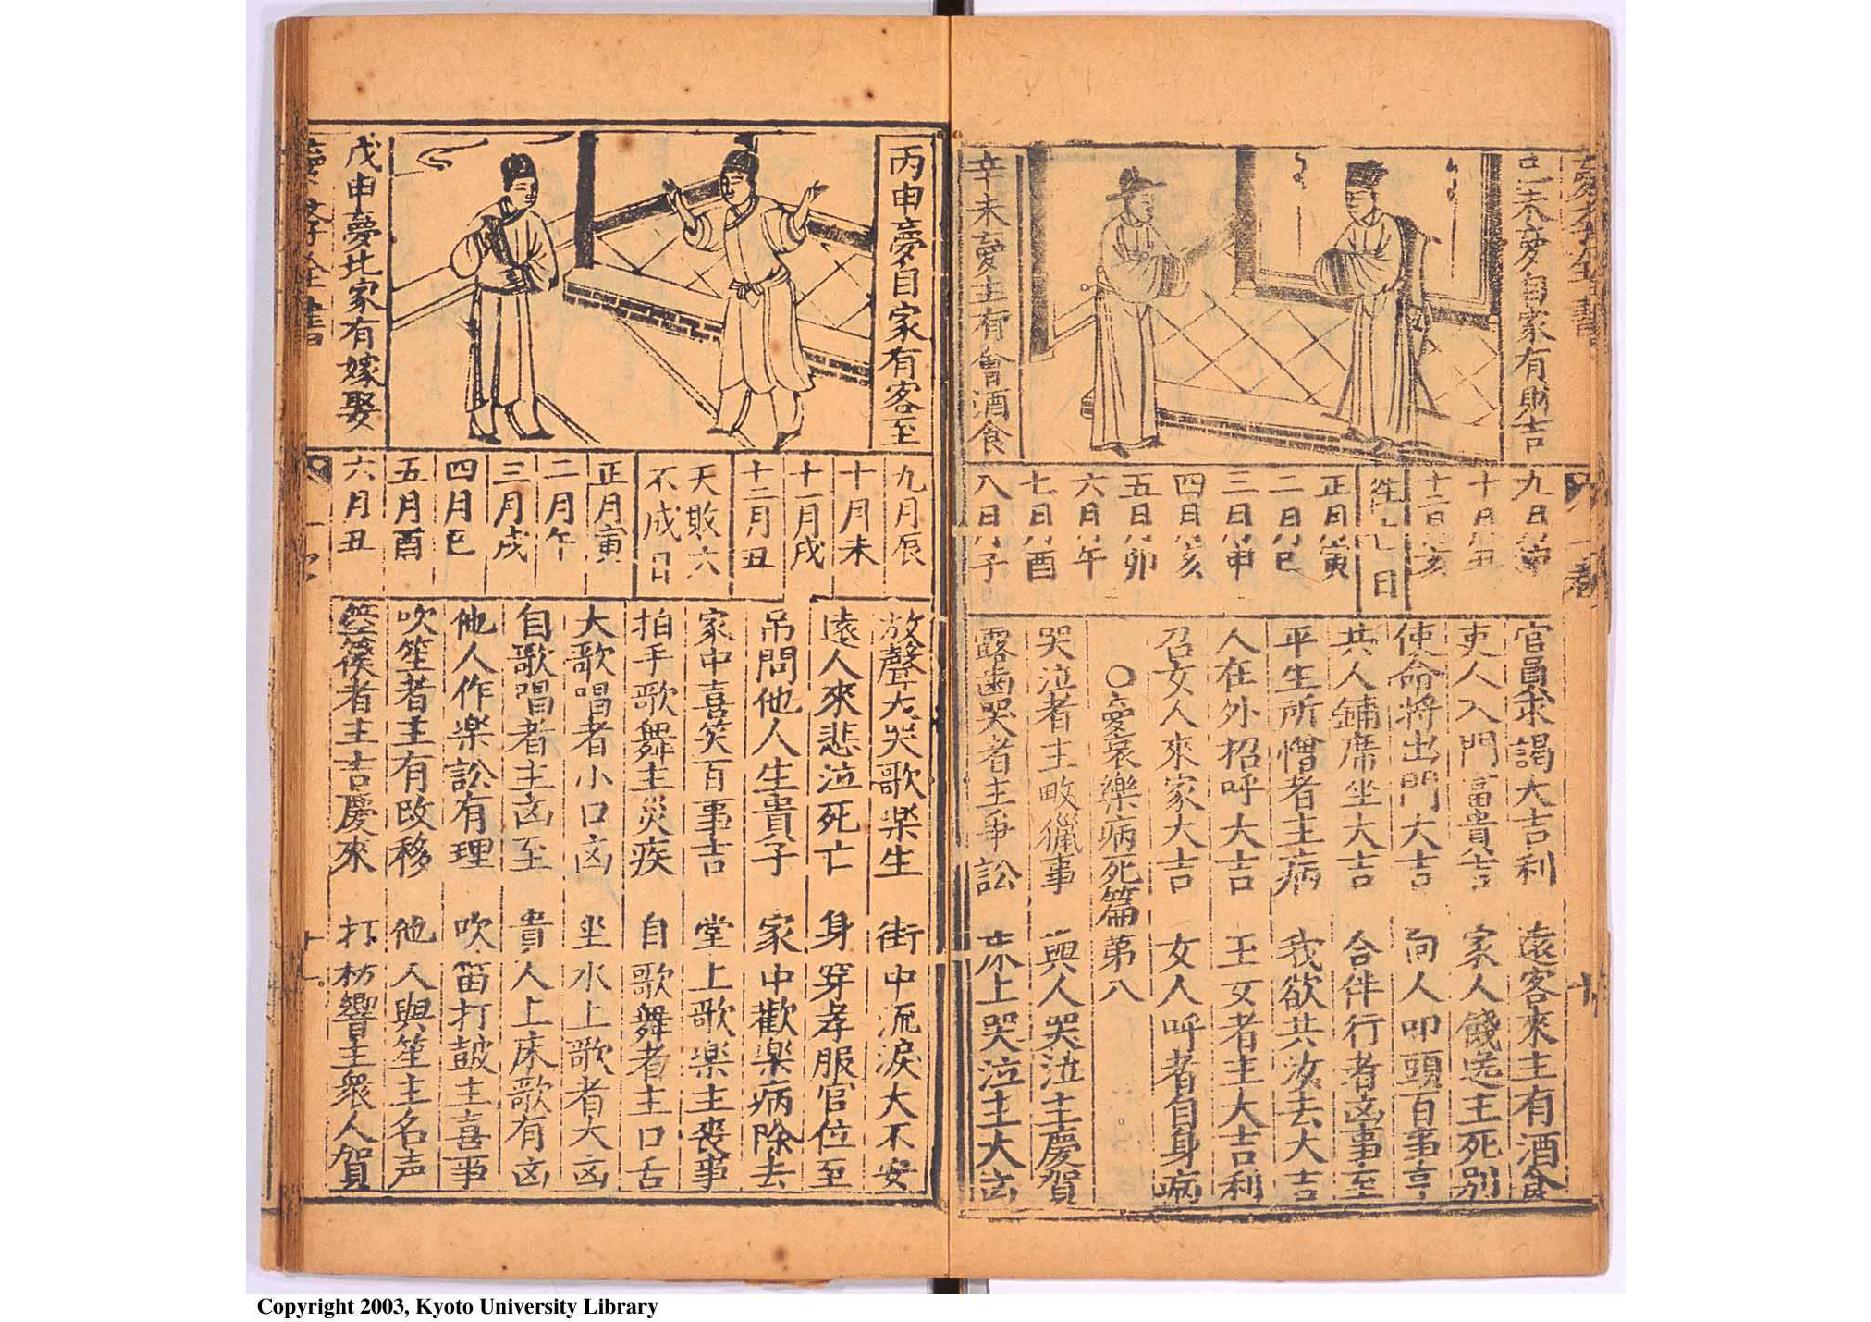 己未夢自家有財吉
辛未夢主有會酒食
九日
十日丑
十二日亥
正月寅
二月巳
三月申
四月亥
五月卯
六月午
七月酉
八月子
官員求謁大吉利
遠客來主有酒食
吏人入門富貴吉
家人餞送主死別
使命將出門大吉
向人叩頭百事亨
共人鋪席坐大吉
合伴行者凶事至
平生所憎者主病
我欲共汝去大吉
人在外招呼大吉
王女者主大吉利
召女人來家大吉
女人呼者自身病
○夢哀樂病死篇第八
哭泣者主畋獵事
與人哭泣主慶賀
露齒哭者主爭訟
床上哭泣主大凶
丙申夢自家有客至
戊申夢北家有嫁娶
九月辰
十月未
十一月戌
十二月丑
天敗六
不成日
正月寅
二月午
三月戌
四月巳
五月酉
六月丑
放聲大哭歌樂生
街中流淚大不安
遠人來悲泣死亡
身穿孝服官位至
吊問他人生貴子
家中歡樂病除去
家中喜笑百事吉
堂上歌樂主喪事
拍手歌舞主災疾
自歌舞者主口舌
大歌唱者小口凶
坐水上歌者大凶
自歌唱者主凶至
貴人上床歌有凶
他人作樂訟有理
吹笛打鼓主喜事
吹笙者主有改移
他人與笙主名声
箜篌者主吉慶來
打杖響主衆人賀
Copyright 2003, Kyoto University Library